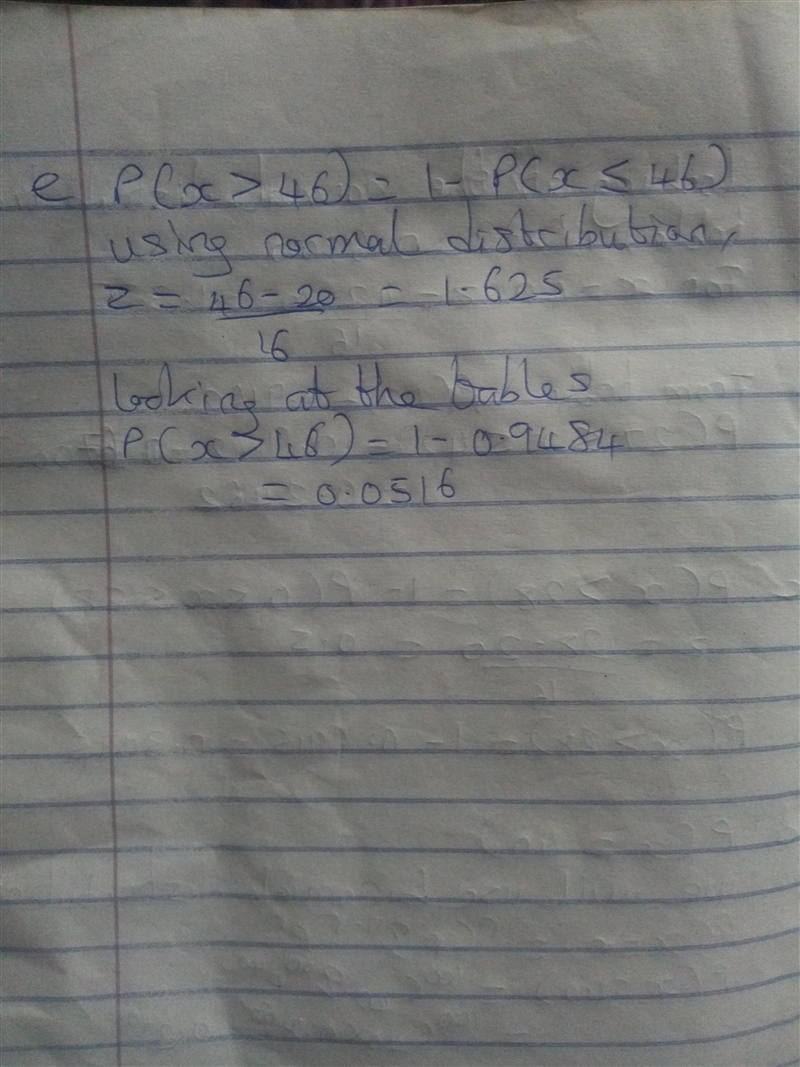 e P(x > 46) = 1 - P(x ≤ 46)
using normal distribution,
z = 46 - 20 = 1.625
16
looking at the tables
P(x > 46) = 1 - 0.9484
= 0.0516